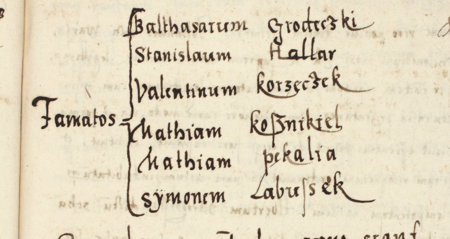 Balthasarum Grodeczki
Stanislaum Hallar
Valentinum korzeczek
Famatos
Mathiam koßnikiel
Mathiam pekalia
Symonem Labussek